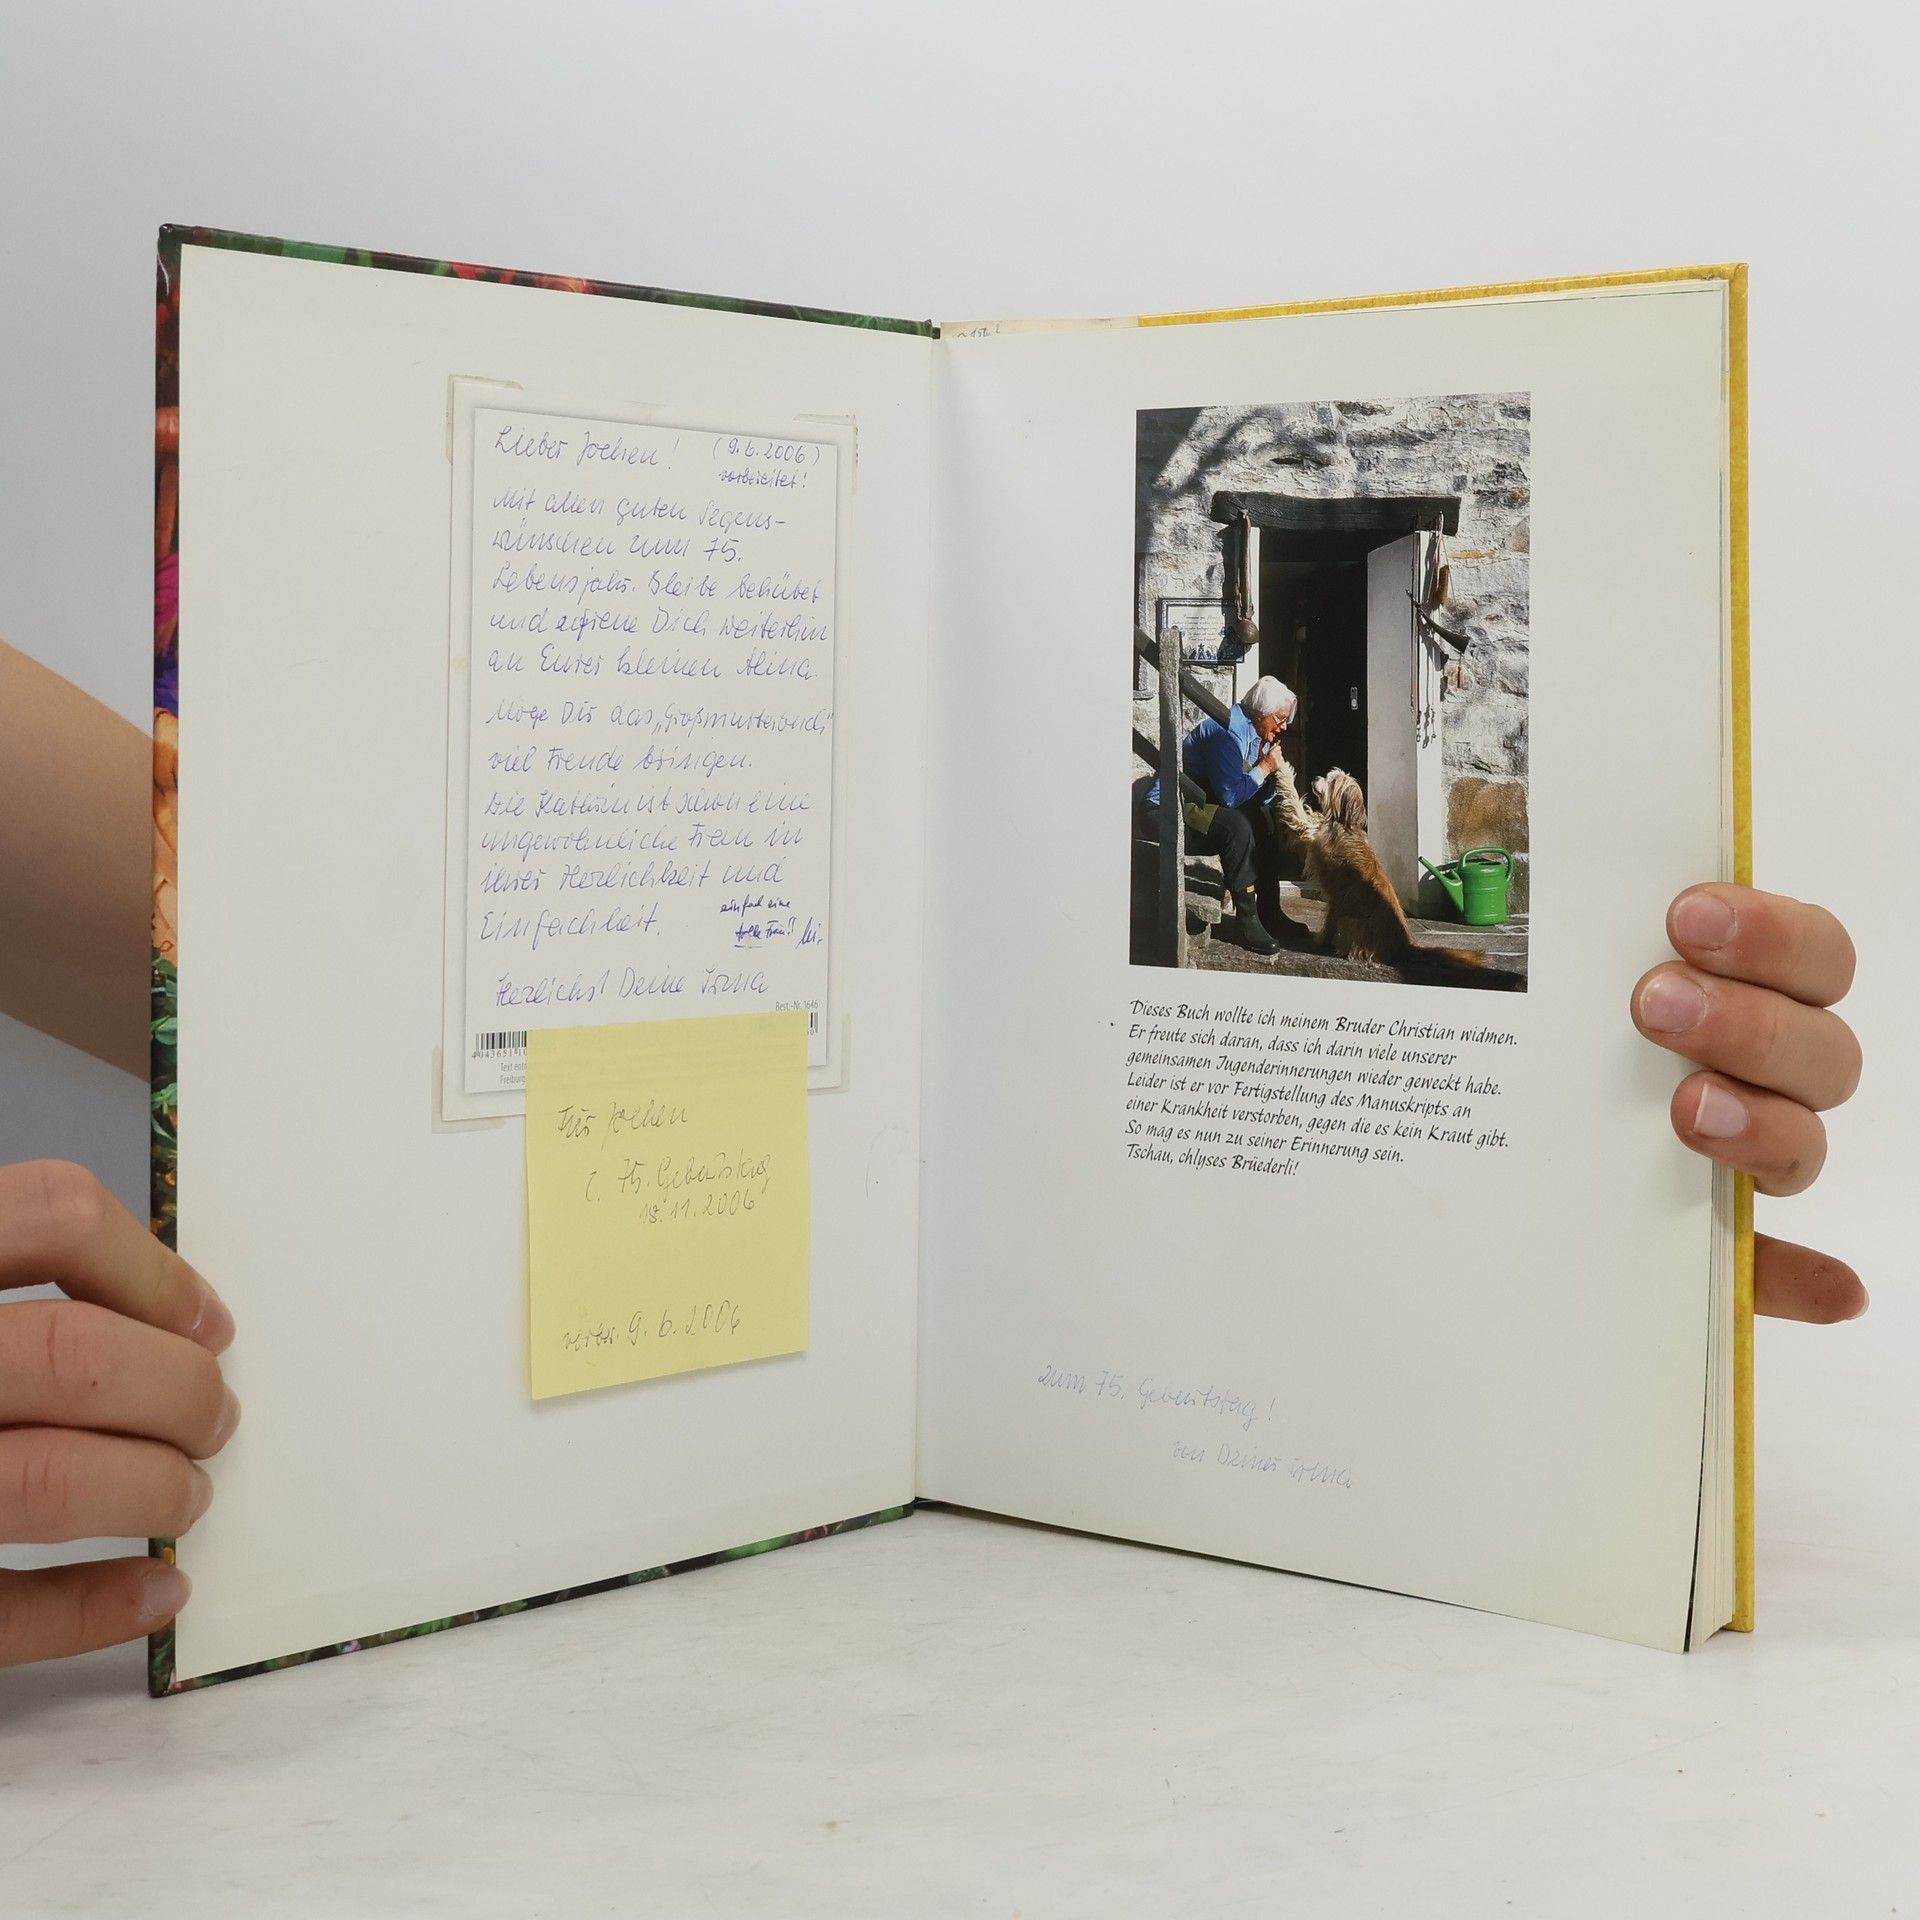 Lieber Jochen! (9.6.2006)
vorbereitet!
Mit allen guten Segens-
wünschen zum 75.
Lebensjahr. Bleibe behütet
und erfreue Dich weiterhin
an Eurer kleinen Alina.
Möge Dir das „Großmutterbuch"
viel Freude bringen.
Die Kathrin ist schon eine
ungewöhnliche Frau in
ihrer Herzlichkeit und
Einfachheit. einfach eine
tolle Frau!!
Herzlichst Deine Irma
Best.-Nr. 1646
4043651
Text
Freiburg
Für Jochen
z. 75. Geburtstag
18.11.2006
vorber. 9.6.2006
Dieses Buch wollte ich meinem Bruder Christian widmen.
Er freute sich daran, dass ich darin viele unserer
gemeinsamen Jugenderinnerungen wieder geweckt habe.
Leider ist er vor Fertigstellung des Manuskripts an
einer Krankheit verstorben, gegen die es kein Kraut gibt.
So mag es nun zu seiner Erinnerung sein.
Tschau, chlyses Brüederli!
zum 75. Geburtstag!
von Deiner Irma